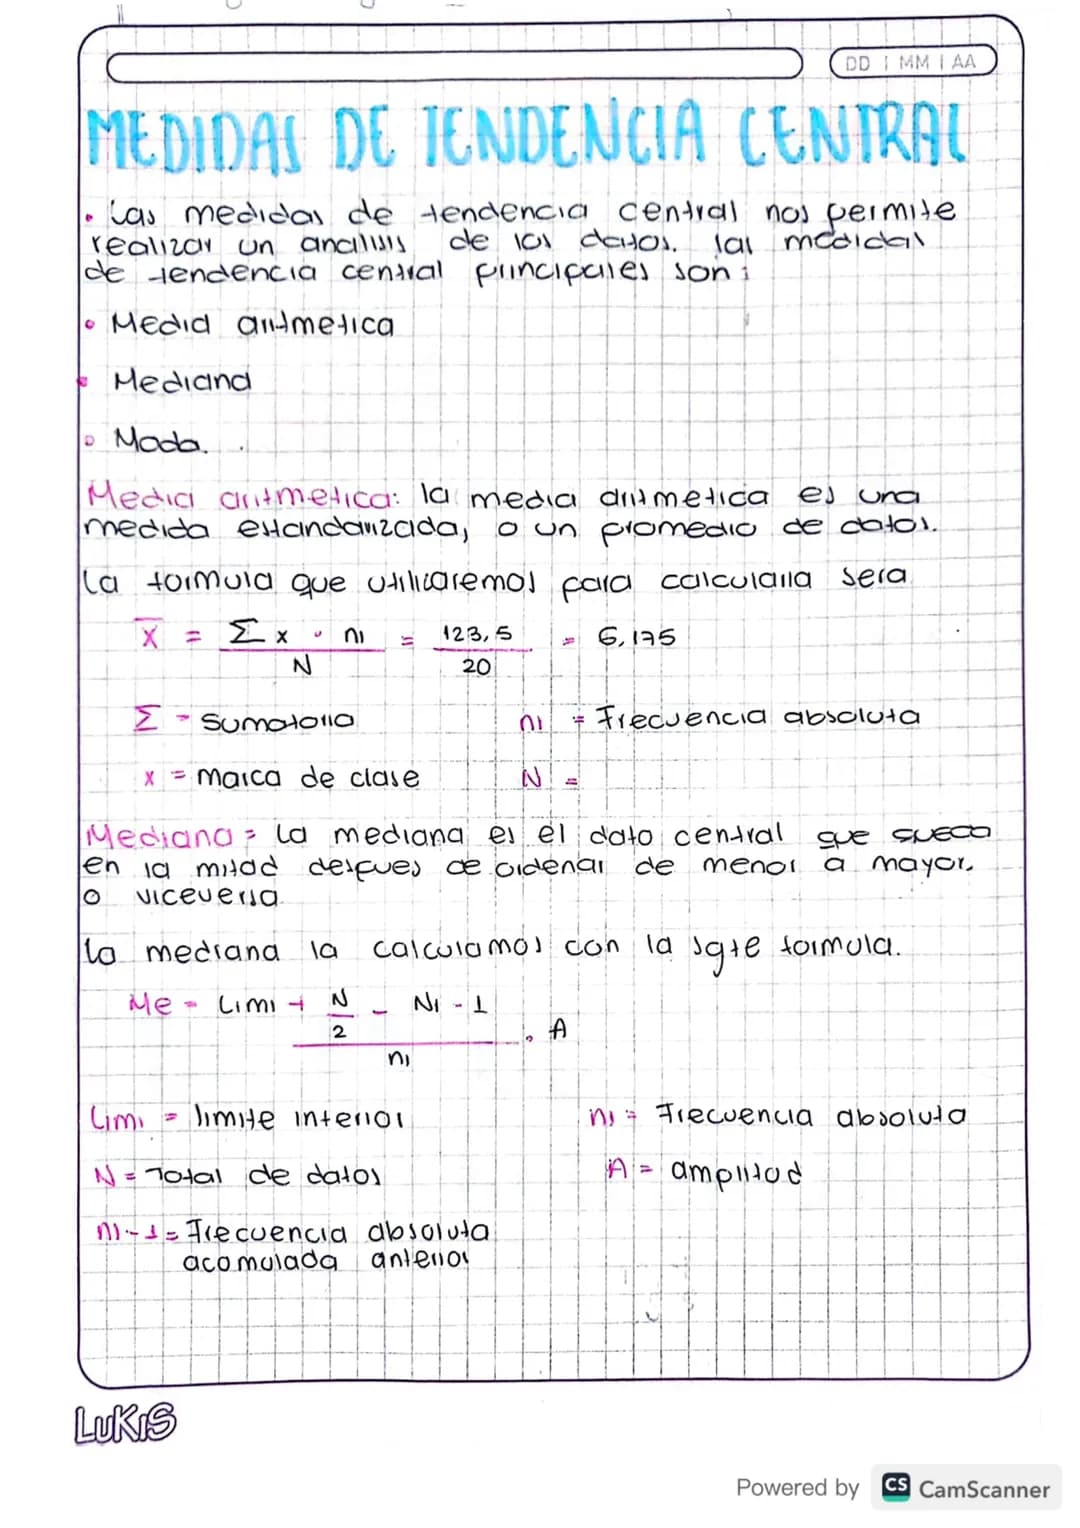 DD | MM | AA
MEDIDAS DE TENDENCIA CENTRAL
• Las medidas de tendencia central nos permite
realizar un analisis de los datos. las medidas
de tendencia central principales son:
• Media aritmetica
• Mediana
• Moda.
Media aritmetica: la media aritmetica es una
medida estandarizada, o un promedio de datos.
La formula que utilizaremos para calcularla sera
X̅ = Σx · ni / N = 123,5 / 20 = 6,175
Σ = Sumatoria ni = Frecuencia absoluta
x = marca de clase N =
Mediana = La mediana es el dato central que queda
en la mitad despues de ordenar de menor a mayor,
o viceversa
La mediana la calculamos con la sgte formula.
Me = Limi + N/2 - Ni - 1 / ni · A
Limi = limite inferior ni = Frecuencia absoluta
N = Total de datos A = amplitud
ni-1 = Frecuencia absoluta
acomulada anterior
LUKIS
Powered by CS CamScanner